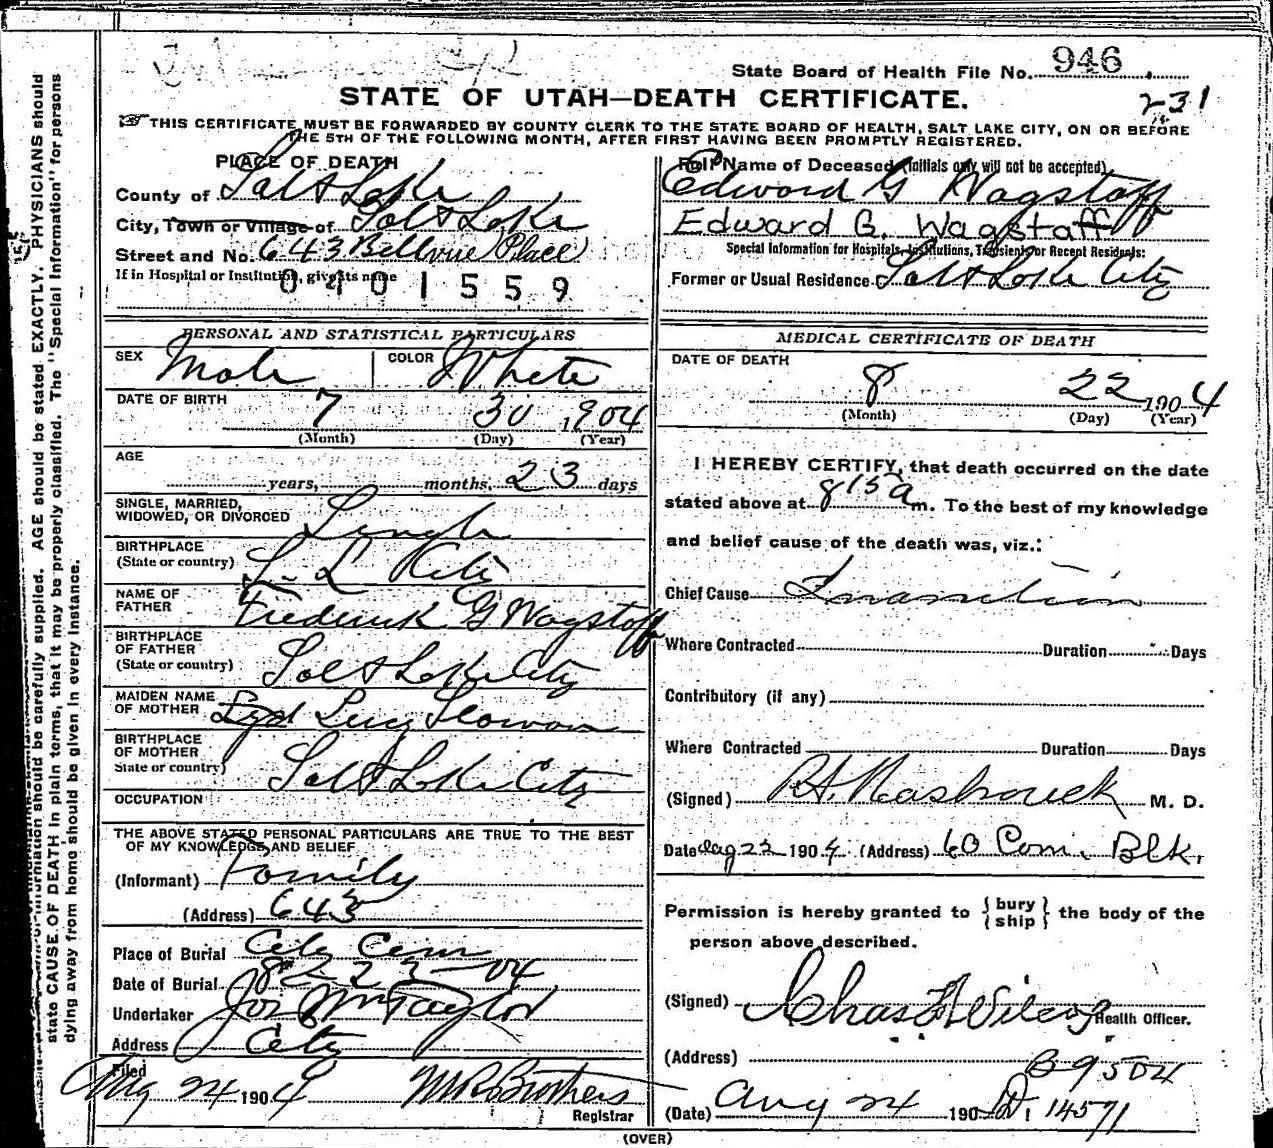 State Board of Health File No. 946
231
STATE OF UTAH—DEATH CERTIFICATE.
☞ THIS CERTIFICATE MUST BE FORWARDED BY COUNTY CLERK TO THE STATE BOARD OF HEALTH, SALT LAKE CITY, ON OR BEFORE
THE 5TH OF THE FOLLOWING MONTH, AFTER FIRST HAVING BEEN PROMPTLY REGISTERED.
PLACE OF DEATH
County of Salt Lake
City, Town or Village of Salt Lake
Street and No. 643 Bellvue Place
If in Hospital or Institution, give its name
0401559
PERSONAL AND STATISTICAL PARTICULARS
SEX Male COLOR White
DATE OF BIRTH 7 30 1904
(Month) (Day) (Year)
AGE
years, months, 23 days
SINGLE, MARRIED,
WIDOWED, OR DIVORCED Single
BIRTHPLACE
(State or country) S. L. City
NAME OF
FATHER Frederick G Wagstaff
BIRTHPLACE
OF FATHER
(State or country) Salt Lake City
MAIDEN NAME
OF MOTHER Lucy
BIRTHPLACE
OF MOTHER
State or country) Salt Lake City
OCCUPATION
THE ABOVE STATED PERSONAL PARTICULARS ARE TRUE TO THE BEST
OF MY KNOWLEDGE AND BELIEF
(Informant) Family
(Address) 643
Place of Burial City Cem
Date of Burial 8-22-04
Undertaker Jos Wm Taylor
Address City
Filed
Aug 24 1904 Brothers
Registrar
Full Name of Deceased (Initials only will not be accepted)
Edward G Wagstaff
Edward G. Wagstaff
Special Information for Hospitals, Institutions, Transients or Recent Residents:
Former or Usual Residence Salt Lake City
MEDICAL CERTIFICATE OF DEATH
DATE OF DEATH
8 22 1904
(Month) (Day) (Year)
I HEREBY CERTIFY, that death occurred on the date
stated above at 815 a m. To the best of my knowledge
and belief cause of the death was, viz.:
Chief Cause Inanition
Where Contracted Duration Days
Contributory (if any)
Where Contracted Duration Days
(Signed) M. D.
Date Aug 22 1904 (Address) 60 Com. Blk.
Permission is hereby granted to { bury
ship } the body of the
person above described.
(Signed) Chas Wilcox Health Officer.
(Address)
B 9504
(Date) Aug 24 190 D. 14571
(OVER)
state CAUSE OF DEATH in plain terms, that it may be properly classified. The "Special Information" for persons
dying away from home should be given in every instance.
information should be carefully supplied. AGE should be stated EXACTLY. PHYSICIANS should